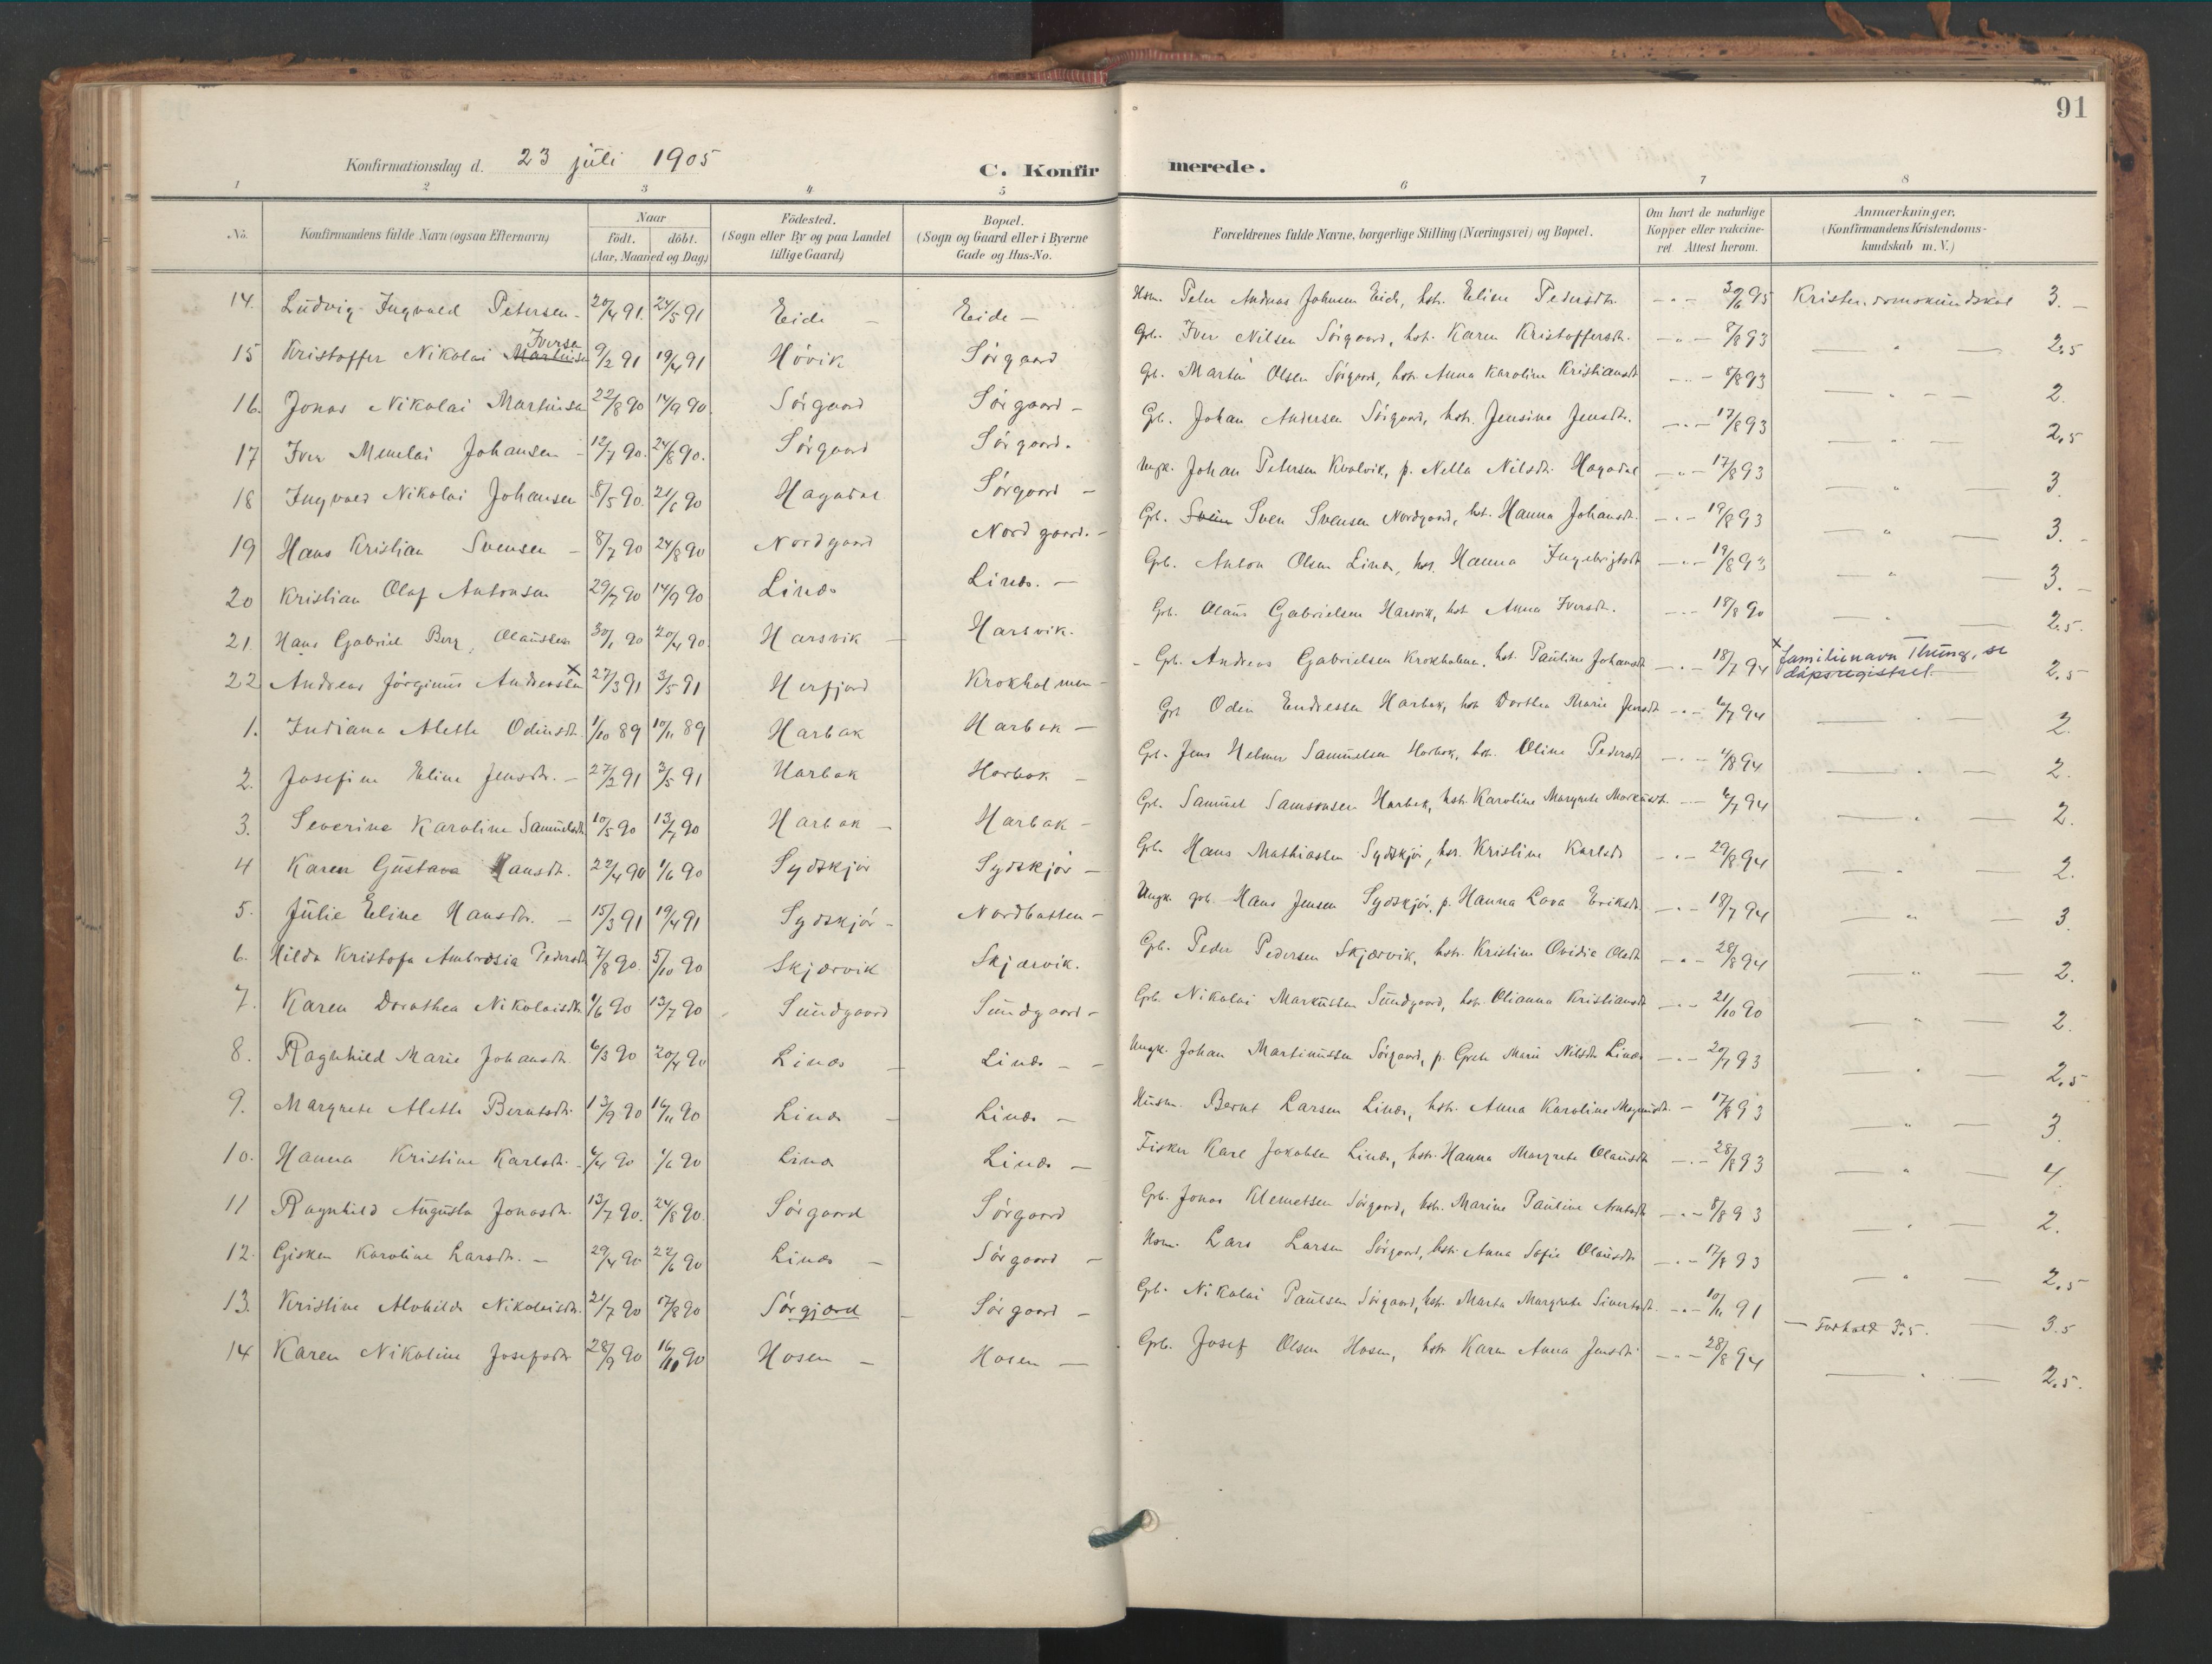 91
Konfirmationsdag d. 23 juli 1905 C. Konfir merede.
1 2 3 4 5 6 7 8
No. Konfirmandens fulde Navn (ogsaa Efternavn) Naar födt. döbt. (Aar, Maaned og Dag) Födested. (Sogn eller By og paa Landet tillige Gaard) Bopæl. (Sogn og Gaard eller i Byerne Gade og Hus-No. Forældrenes fulde Navne, borgerlige Stilling (Næringsvei) og Bopæl. Om havt de naturlige Kopper eller vakcineret. Attest herom. Anmærkninger. (Konfirmandens Kristendomskundskab m. V.)
14. Ludvig Ingvald Petersen - 20/4 91. 24/5 91 Eide - Eide - Hsm. Peder Andreas Johnsen Eide, hst. Elise Pedersdtr. - " - 30/6 95 Kristendomskundskab 3. -
15 Kristoffer Nikolai Martinsen Iversen 9/2 91 19/4 91 Hövik Sörgaard Gb. Iver Nilsen Sörgaard, hst. Karen Kristoffersdtr. - " - 8/8 93 - " - 2,5
16. Jonas Nikolai Martinsen 22/8 90 14/9 90. Sörgaard Sörgaard - Gb. Martin Olsen Sörgaard, hst. Anna Karoline Kristiansdtr - " - 8/8 93 - " - 2.
17 Iver Menelai Johansen - 12/7 90. 24/8 90. Sörgaard Sörgaard. Gb. Johan Andersen Sörgaard, hst. Jensine Jensdtr. - " - 17/8 93 - " - 2,5
18 Ingvald Nikolai Johansen 8/5 90. 21/6 90 Hagadal Sörgaard - Ungk. Johan Petersen Kvalvik, p. Nella Nilsdtr. Hagadal - " - 17/8 93 - " - 3.
19 Hans Kristian Svensen - 8/7 90 24/8 90 Nordgaard Nordgaard. - Gb. Svein Sven Svensen Nordgaard, hst. Hanna Johansdtr. - " - 19/8 93 - " - 3. -
20 Kristian Olaf Antonsen 29/7 90 14/9 90 Linds Linds. - Gb. Anton Olsen Linds, hst. Hanna Ingebrigtsdtr - " - 19/8 93 - " - 3. -
21. Hans Gabriel Berg, Olaussen 30/1 90 20/4 90. Harsvik - Harsvik. Gb. Olaus Gabrielsen Harsvik, hst. Anna Iversdtr. - " - 18/8 90 - " - 2.5.
22 Andreas Jörginus Andreassen x 27/3 91 3/5 91 Herfjord Krokholmen - - Gb. Andreas Gabrielsen Krokholmen, hst. Pauline Johansdtr - " - 18/7 94 x familienavn Thung, se dåpsregistret. 2,5
1. Indiana Alette Odinsdtr. 1/10 89 10/11 89 Harbak Harbak - Gb Odin Endressen Harbak, hst. Dorthea Marie Jensdtr - " - 6/7 94 - " - 2.
2. Josefine Eline Jensdtr. - 27/2 91 3/5 91 Harbak Harbak - Gb. Jens Helmer Samuelsen Harbak, hst. Oline Pedersdtr - " - 4/8 94 - " - 2.
3. Severine Karoline Samuelsdtr 10/5 90 13/7 90 Harbak - Harbak - Gb. Samuel Samsonsen Harbak, hst. Karoline Margrete Markusdtr. - " - 6/7 94 - " - 2.
4 Karen Gustava Hansdtr. 22/4 90 1/6 90 Sydskjör Sydskjör - Gb. Hans Mathiassen Sydskjör, hst. Kristine Karlsdtr - " - 29/8 94 - " - 2.
5. Julie Eline Hansdtr. - 15/3 91 19/4 91 Sydskjör - Nordbotten - Ungk. gb. Hans Jensen Sydskjör, p. Hanna Lova Eriksdtr. - " - 18/7 94 - " - 3.
6. Hilda Kristofa Ambrosia Pedersdtr 7/8 90. 5/10 90 Skjærvik Skjærvik. Gb. Peder Pedersen Skjærvik, hst. Kristine Ovidie Olsdtr - " - 28/8 94 - " - 2.
7. Karen Dorothea Nikolaisdtr 1/6 90 13/7 90 Sundgaard Sundgaard - Gb. Nikolai Markussen Sundgaard, hst. Olianna Kristiansdtr - " - 21/10 90 - " - 2.
8. Ragnhild Marie Johansdtr. 6/3 90 20/4 90 Linds - Linds - - Ungk. Johan Martinussen Sörgaard, p. Grete Marie Nilsdtr Linds - " - 20/7 93 - " - 2,5
9. Margrete Alette Berntsdtr. 13/9 90 16/11 90 Linds - Linds - Husm. Bernt Larsen Linds, hst. Anna Karoline Magnusdtr. - 17/8 93 - " - 3.
10. Hanna Kristine Karlsdtr. - 4/4 90 1/6 90 Linds Linds - Fisker Karl Jakobsen Linds, hst. Hanna Margrete Olausdtr - " - 28/8 93 - " - 4.
11 Ragnhild Augusta Jonasdtr. 13/7 90. 24/8 90. Sörgaard Sörgaard Gb. Jonas Klemetsen Sörgaard, hst. Marine Pauline Arntsdtr - " - 8/8 93 - " - 2.
12. Gisken Karoline Larsdtr. - 29/4 90 22/6 90 Linds - Sörgaard - Hsm. Lars Larsen Sörgaard, hst. Anna Sofie Olausdtr - " - 17/8 93 - " - 2,5
13. Kristine Alvhilde Nikolaisdtr. 21/7 90 17/8 90 Sörgjærd - Sörgaard - Gb. Nikolai Paulsen Sörgaard, hst. Marta Margrete Sivertsdtr. - " - 10/11 91 - Forhold 3.5. - 3.5
14 Karen Nikoline Josefsdtr 28/9 90 16/11 90 Hosen - Hosen - Gb. Josef Olsen Hosen, hst. Karen Anna Jensdtr - " - 28/8 94 - " - 2.5.